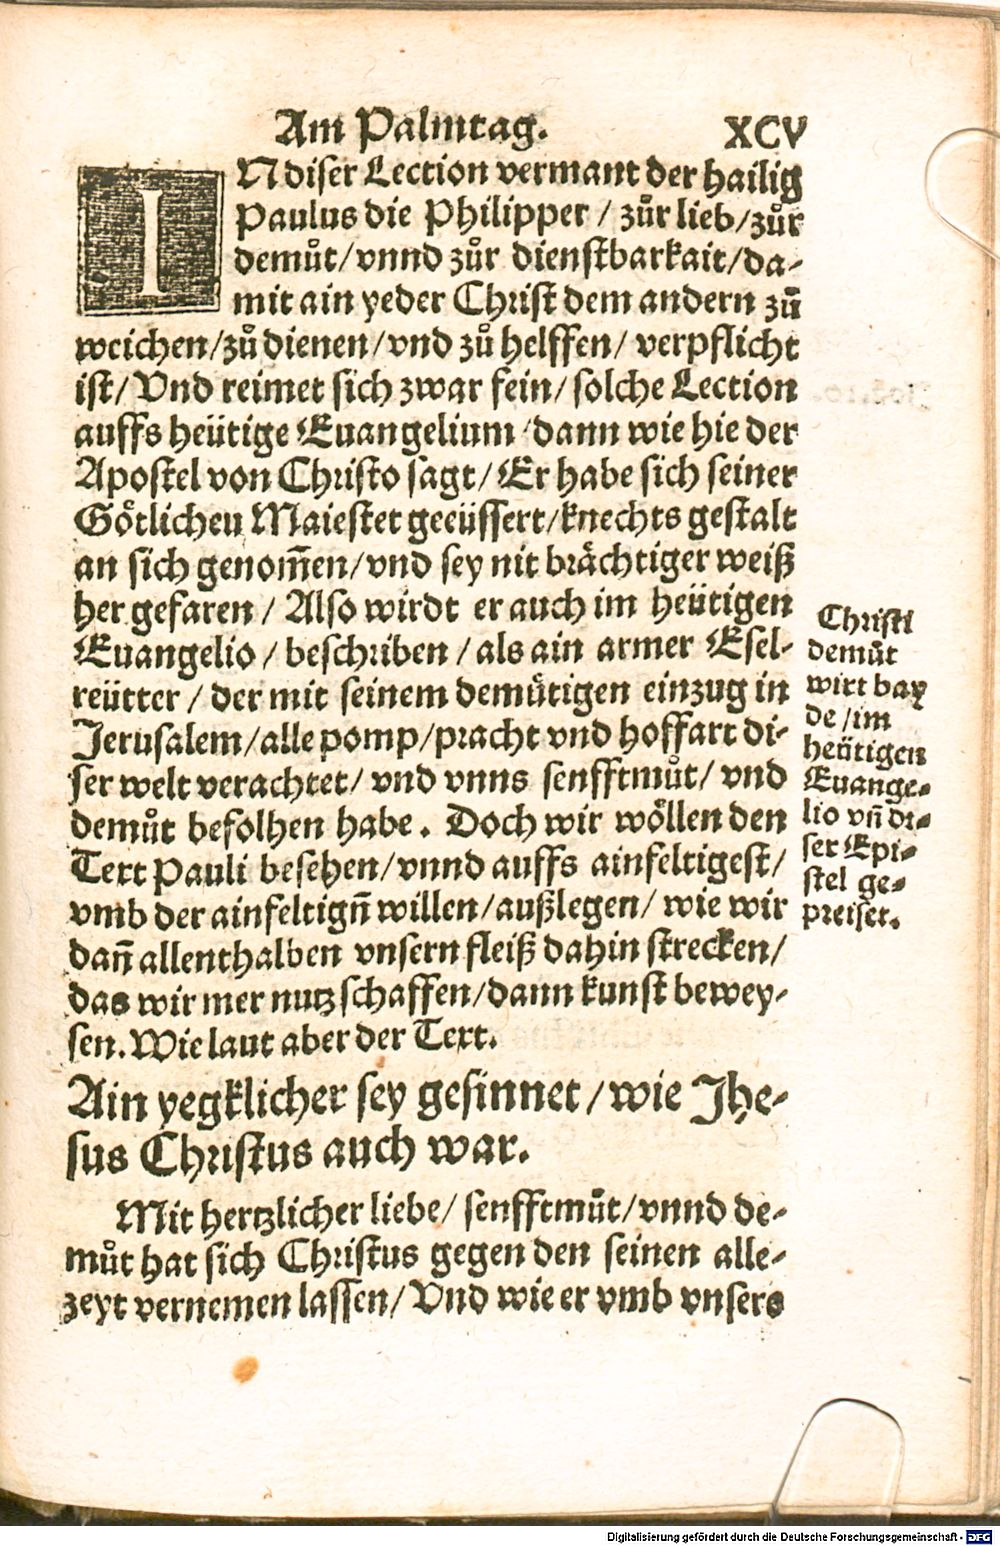 Am Palmtag. XCV
INdiser Lection vermant der hailig
Paulus die Philipper / zůr lieb/zůr
demůt/vnnd zůr dienstbarkait/da-
mit ain yeder Christ dem andern zů
weichen/zů dienen/vnd zů helffen/ verpflicht
ist/ Vnd reimet sich zwar fein/ solche Lection
auffs heütige Euangelium /dann wie hie der
Apostel von Christo sagt/ Er habe sich seiner
Götlichen Maiestet geeüssert/knechts gestalt
an sich genom̃en/vnd sey nit brächtiger weiß
her gefaren / Also wirdt er auch im heütigen
Euangelio / beschriben / als ain armer Esel-
reütter / der mit seinem demütigen einzug in
Jerusalem/alle pomp/pracht vnd hoffart di-
ser welt verachtet/ vnd vnns senfftmůt/ vnd
demůt befolhen habe. Doch wir wöllen den
Text Pauli besehen/vnnd auffs ainfeltigest/
vmb der ainfeltign̄ willen/außlegen/ wie wir
dan̄ allenthalben vnsern fleiß dahin strecken/
das wir mer nutz schaffen/dann kunst bewey-
sen. Wie laut aber der Text.
Ain yegklicher sey gesinnet /wie Jhe-
sus Christus auch war.
Mit hertzlicher liebe/ senfftmůt/vnnd de-
můt hat sich Christus gegen den seinen alle-
zeyt vernemen lassen/ Vnd wie er vmb vnsers
Christi
demůt
wirt bay
de /im
heütigen
Euange-
lio vn̄ di-
ser Epi-
stel ge-
preiset.
Digitalisierung gefördert durch die Deutsche Forschungsgemeinschaft - DFG